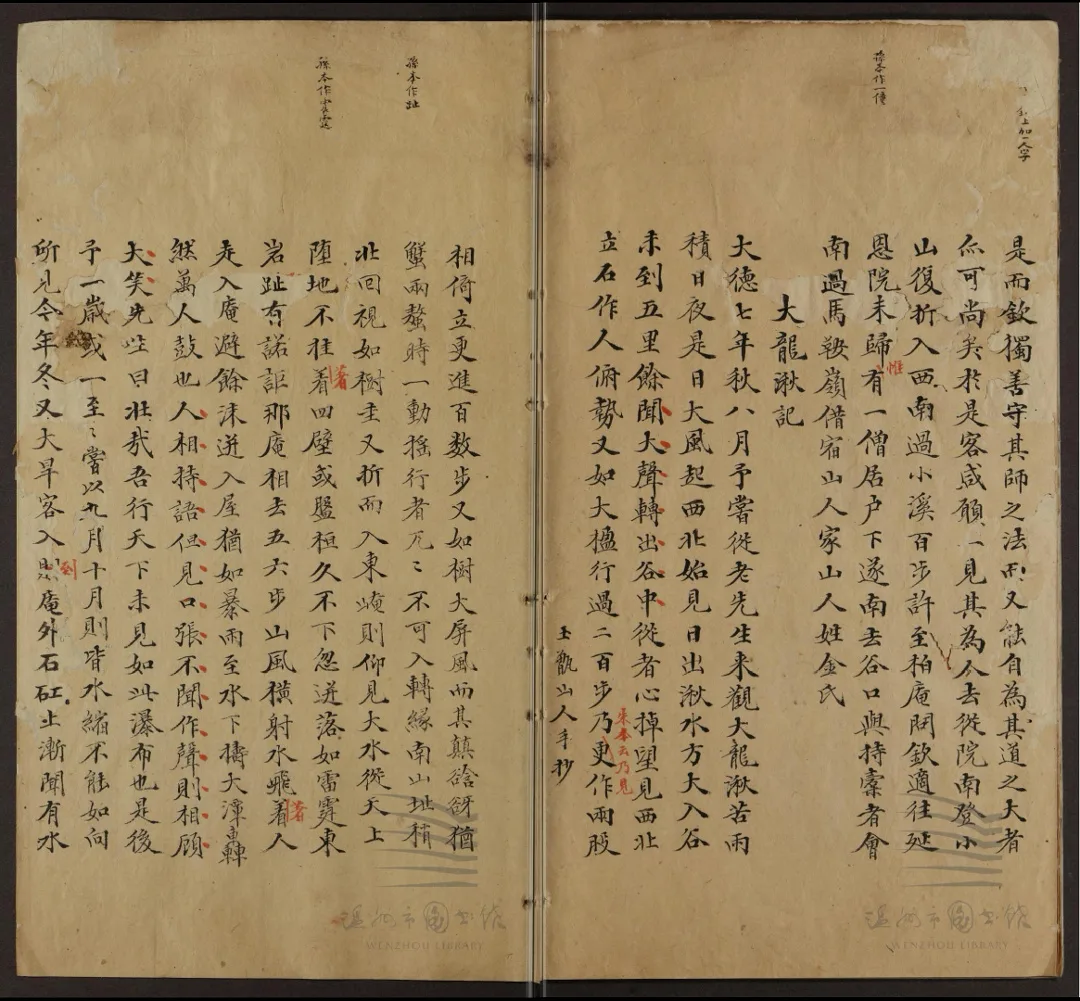 上加一人字
孫本作一僮
是而欽獨善守其師之法而又能自為其道之大者
尒可尚矣於是客咸願一見其為人去從院南登小
山復折入西南過小溪百步許至柏庵問欽適往延
恩院未歸有一僧居户下遂南去谷口與持橐者會
惟
南過馬鞍嶺借宿山人家山人姓金氏
大龍湫記
大德七年秋八月予嘗從老先生来觀大龍湫苦雨
積日夜是日大風起西北始見日出湫水方大入谷
未到五里餘聞大聲轉出谷中從者心掉望見西北
立石作人俯勢又如大楹行過二百步乃更作兩股
朱本云乃見
玉甑山人手抄
孫本作趾
孫本作雷霆
相倚立更進百数步又如樹大屏風而其顛谽谺猶
蟹兩螯時一動摇行者兀〻不可入轉緣南山址稍
北回視如樹圭又折而入東崦則仰見大水從天上
墮地不挂着四壁或盤桓久不下忽迸落如雷霆東
著
岩趾有諾詎那庵相去五六步山風横射水飛着人
著
走入庵避餘沫迸入屋猶如暴雨至水下擣大潭轟
然萬人鼓也人相持語但見口張不聞作聲則相顧
大笑先生曰壯哉吾行天下未見如此瀑布也是後
予一歲或一至〻嘗以九月十月則皆水縮不能如向
所見今年冬又大旱客入庵外石矼上漸聞有水
到
温州市圖書館
WENZHOU LIBRARY
温州市圖書館
WENZHOU LIBRARY